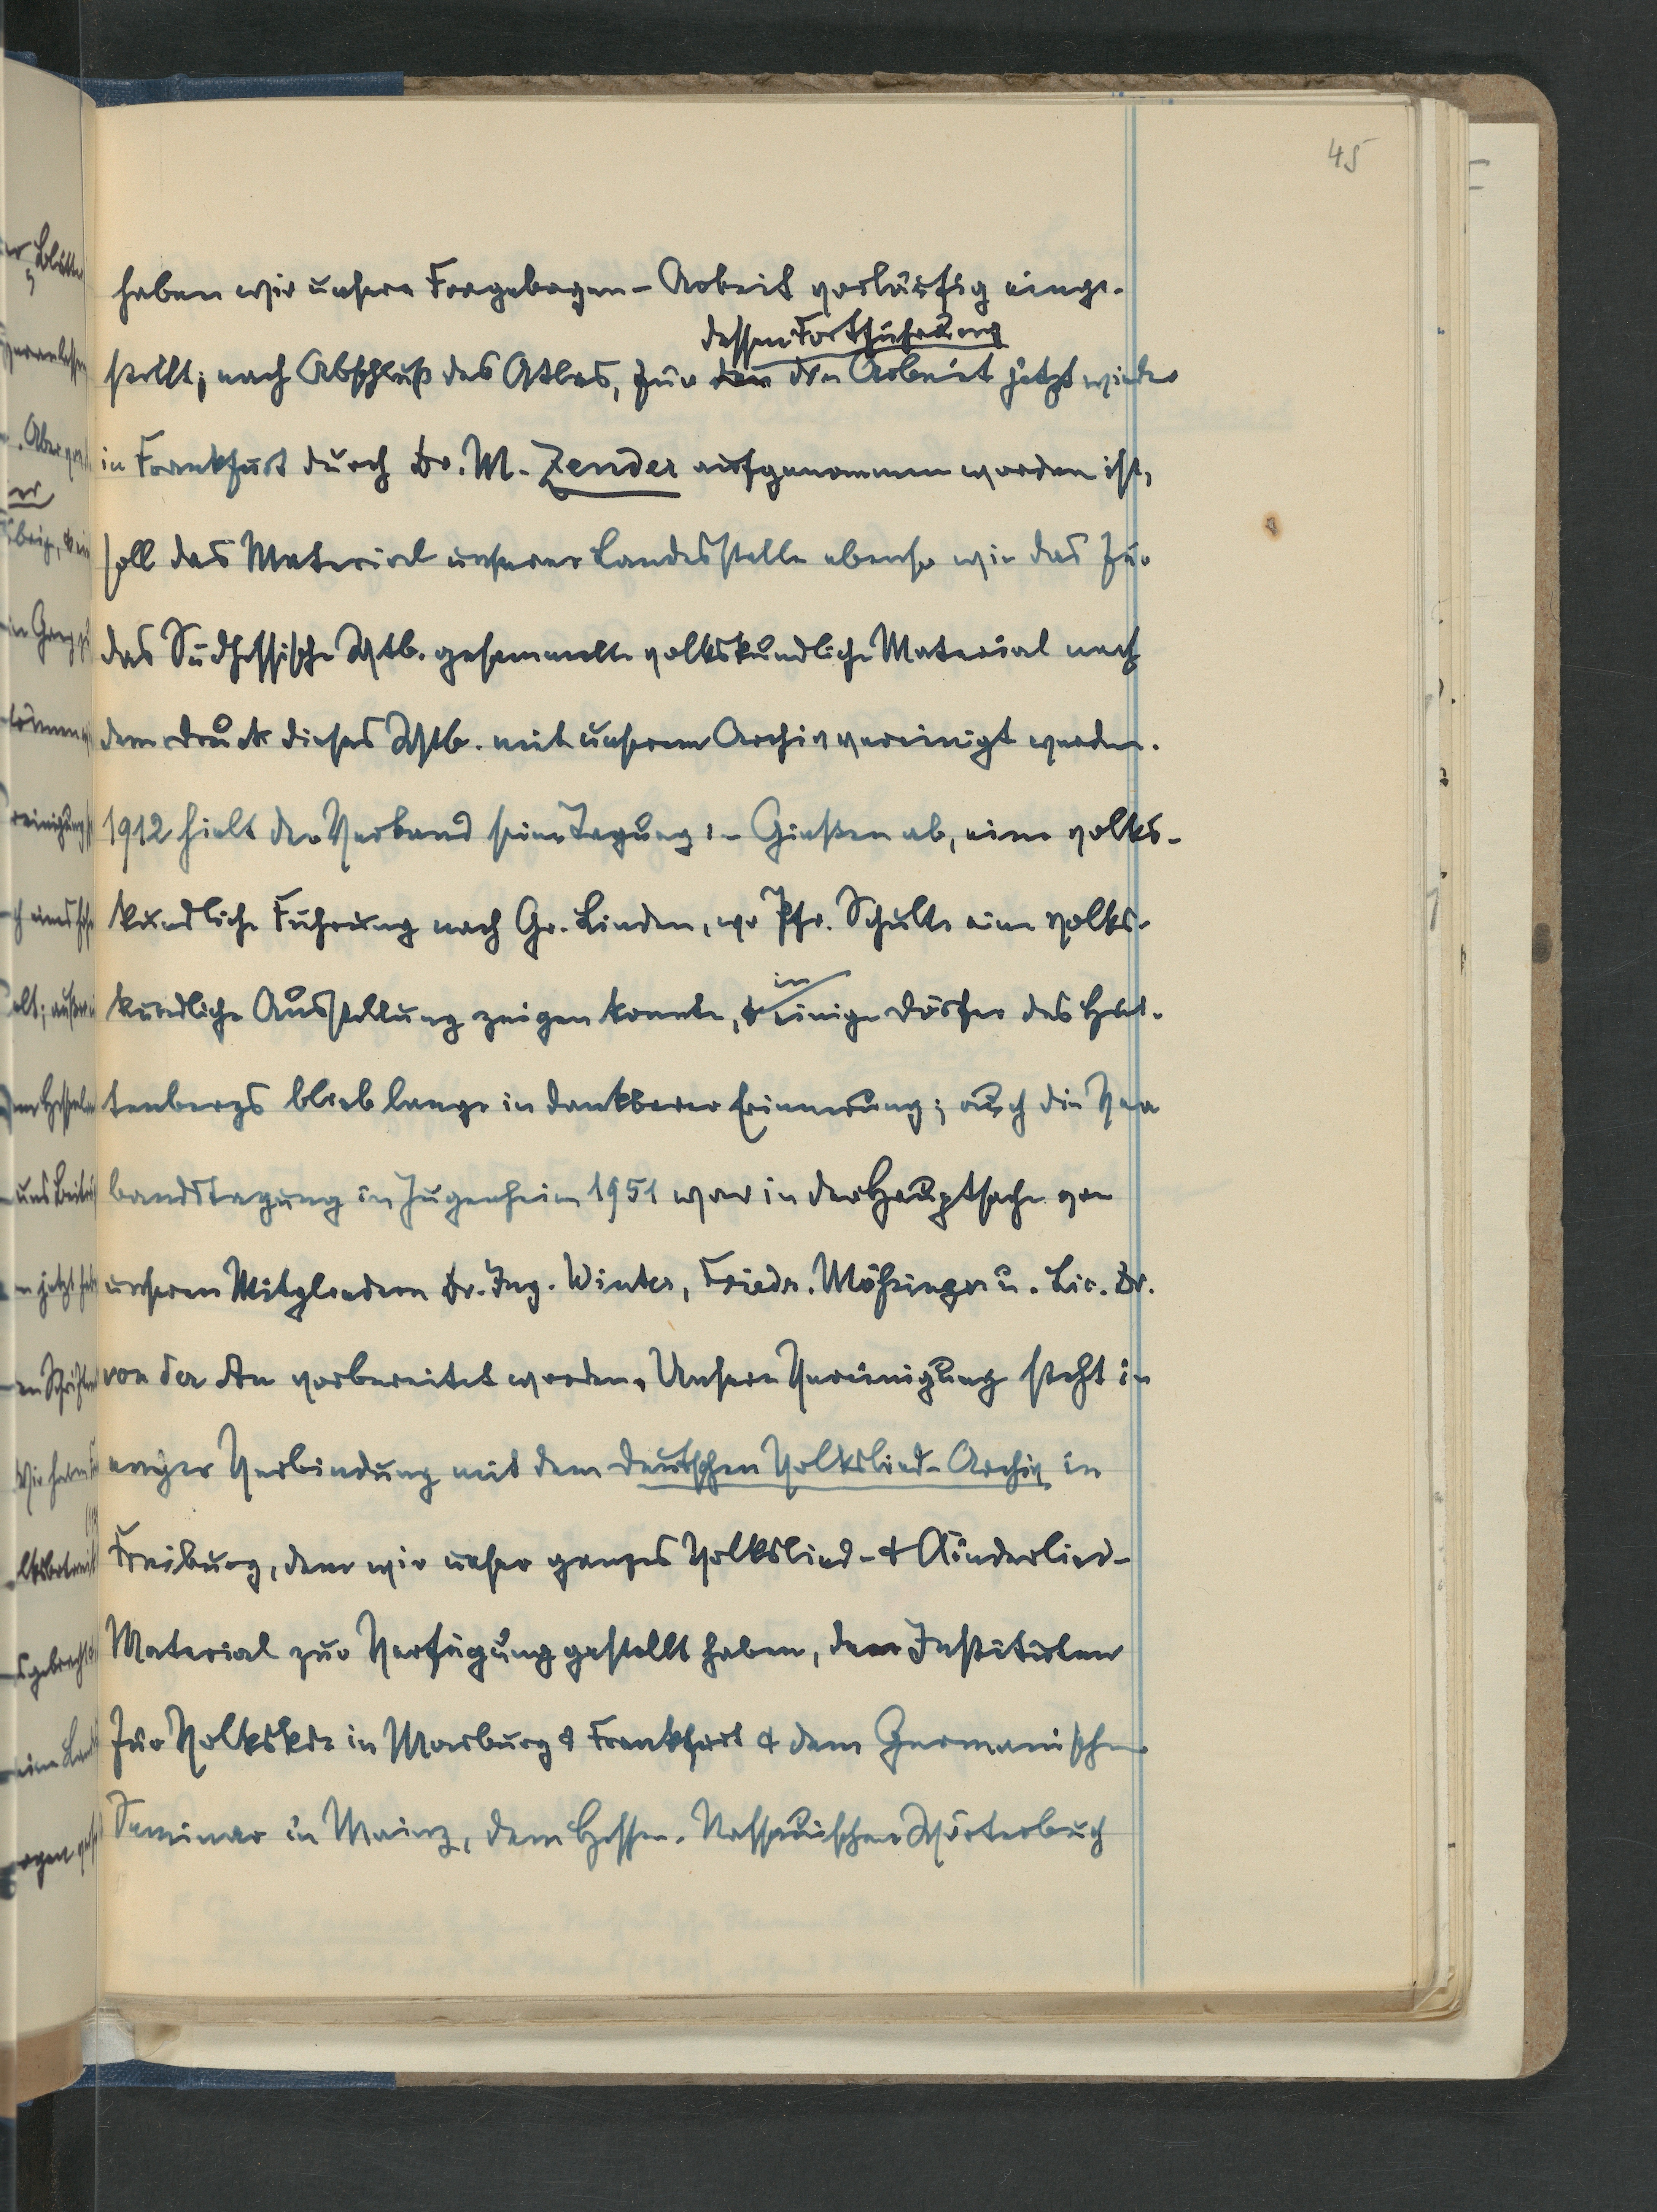 45
haben wir unsere Fragebogen-Arbeit vorläufig einge-
dessen Fortführung
stellt; nach Abschluß des Atlas, für den die Arbeit jetzt wieder
in Frankfurt durch Dr. M. Zender aufgenommen worden ist,
soll das Material unserer Landesstelle ebenso wie das für
das Südhessische Wtb. gesammelte volkskundliche Material nach
dem Druck dieses Wtb. mit unserem Archiv vereinigt werden.
1912 hielt der Verband seine Tagung in Gießen ab, eine volks-
kundliche Führung nach Gr. Linden, wo Pfr. Schulte eine volks-
in
kundliche Ausstellung zeigen konnte, & einige Dörfer des Hüt-
tenbergs blieb lange in dankbarer Erinnerung; auch die Ver
bandstagung in Jugenheim 1951 war in der Hauptsache von
unseren Mitgliedern Dr. Ing. Winter, Friedr. Mößinger u. Lic. Dr.
von der Au vorbereitet worden. Unsere Vereinigung steht in
enger Verbindung mit dem Deutschen Volkslied-Archiv in
Freiburg, dem wir unser ganzes Volkslied- & Kinderlied-
Material zur Verfügung gestellt haben, den Instituten
für Volkskde in Marburg & Frankfurt & dem Germanischen
Seminar in Mainz, dem Hessen-Nassauischen Wörterbuch